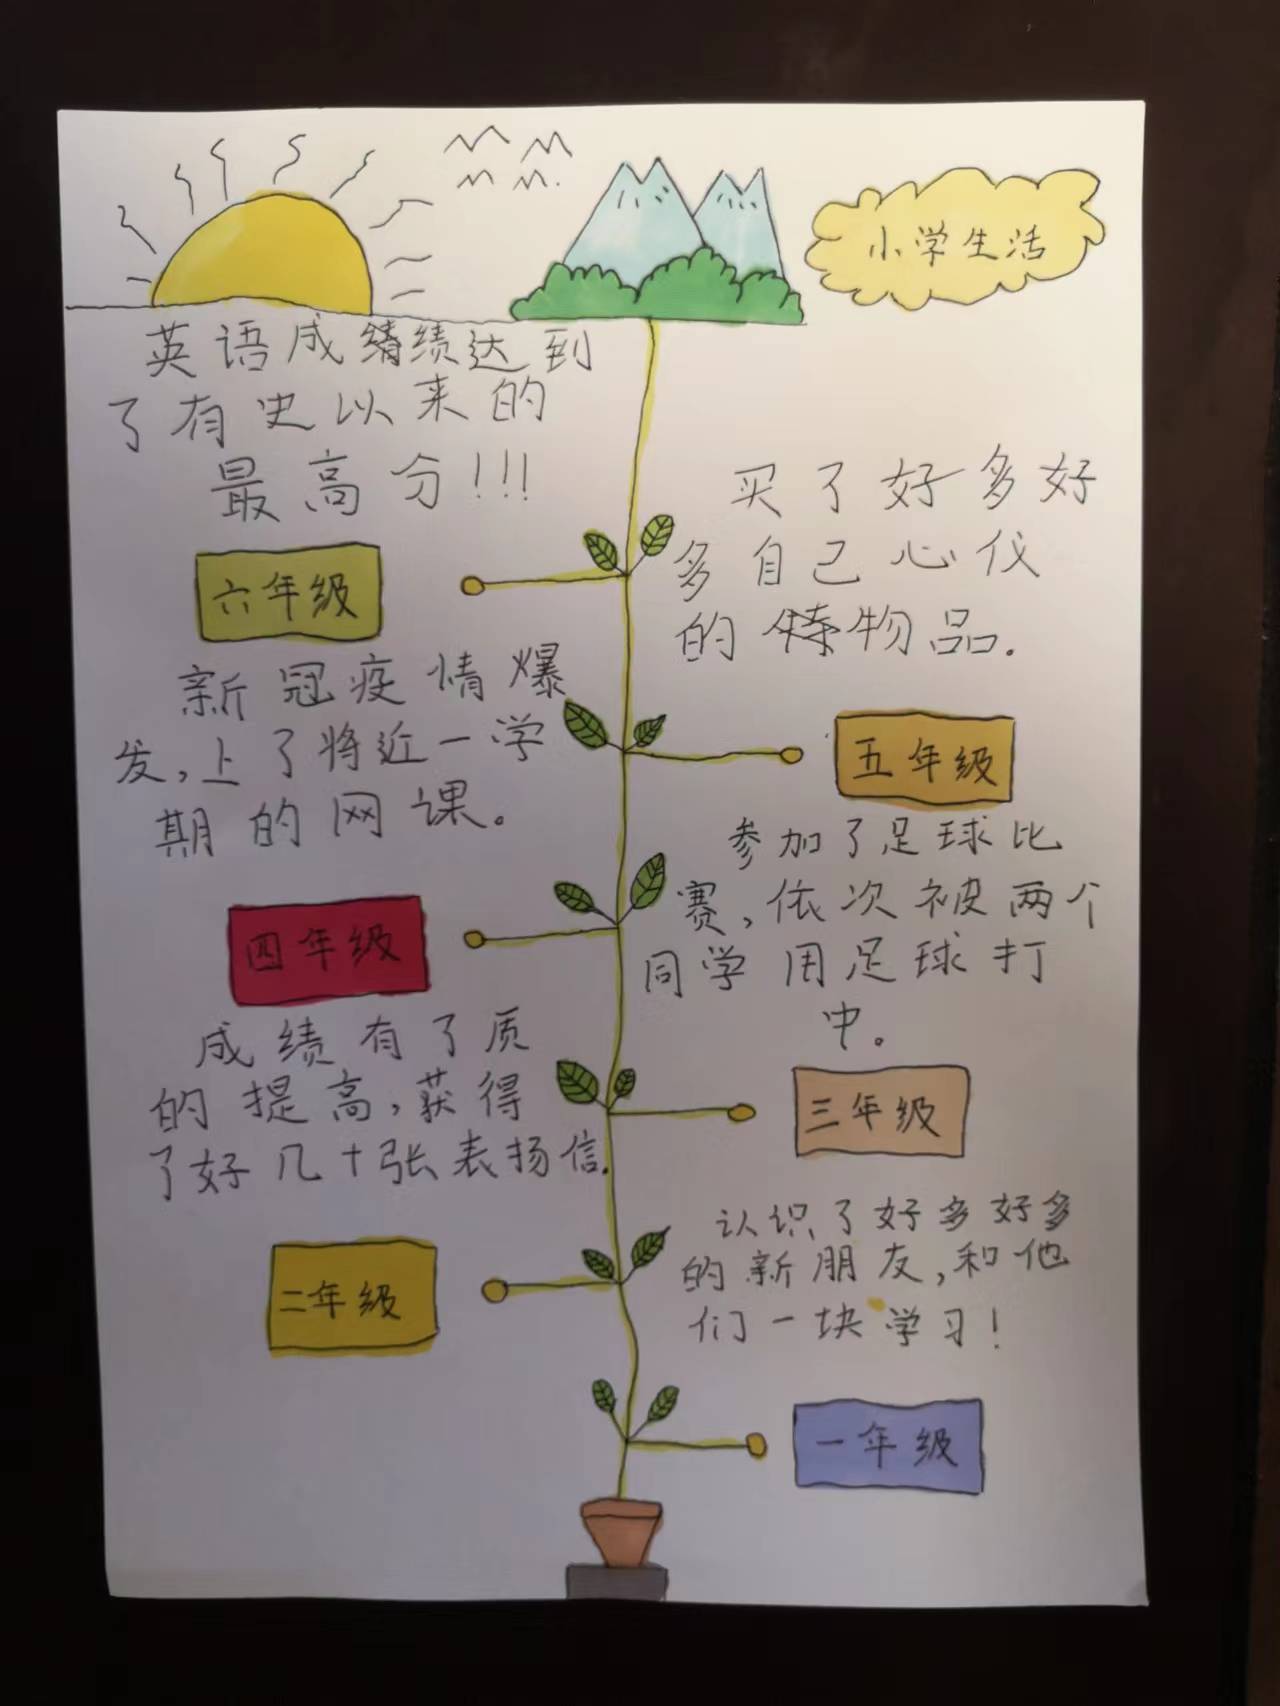 小学生活
英语成绩绩达到
了有史以来的
最高分!!!
六年级
买了好多好
多自己心仪
的物品.
五年级
新冠疫情爆
发,上了将近一学
期的网课。
四年级
参加了足球比
赛,依次被两个
同学用足球打
中。
三年级
成绩有了质
的提高,获得
了好几十张表扬信.
二年级
认识了好多好多
的新朋友,和他
们一块学习!
一年级